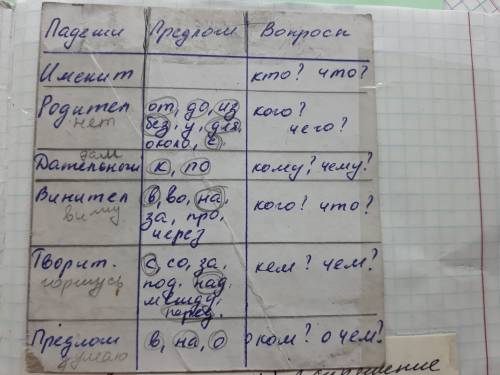 Падежи Предлоги Вопросы
Именит кто? что?
Родител от, до, из кого?
нет без, у, для, чего?
около, с
дам
Дательный к, по кому? чему?
Винител в, во, на, кого? что?
вижу за, про,
через
Творит. с, со, за, кем? чем?
горжусь под, над,
между,
перед.
Предлож в, на, о о ком? о чём?
думаю